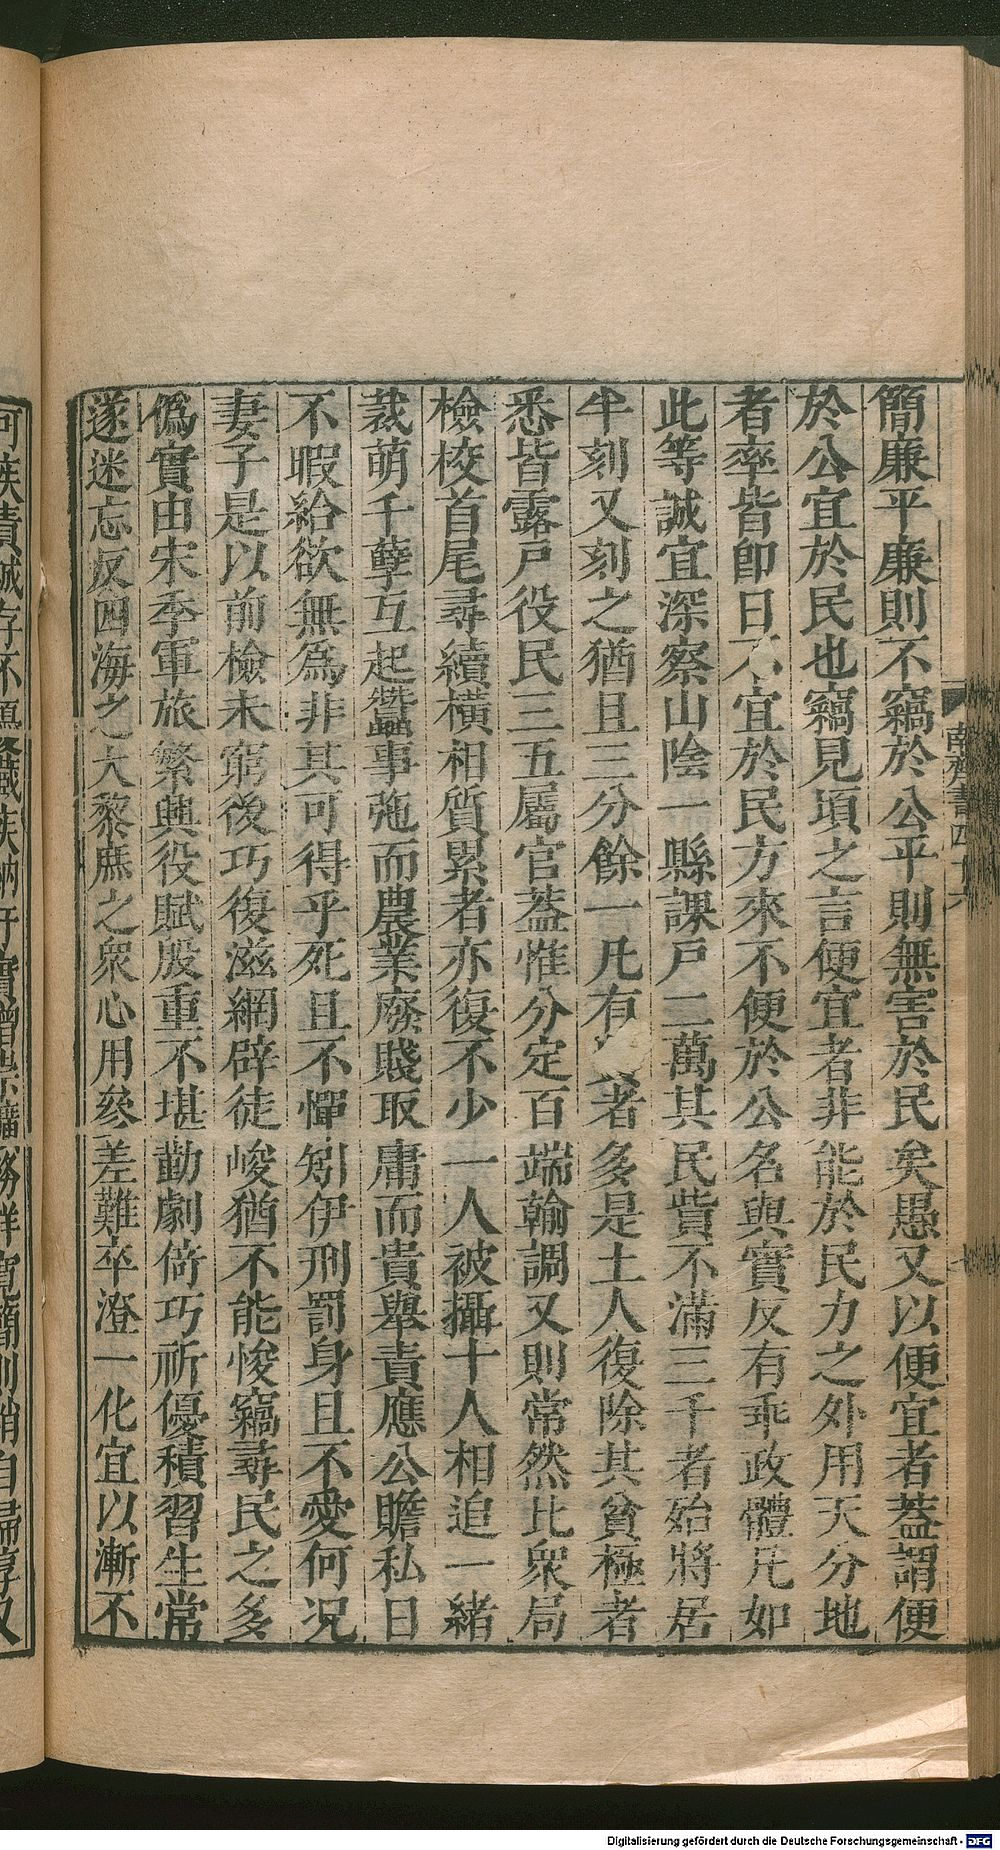 簡廉平廉則不竊於公平則無害於民矣愚又以便宜者蓋謂便
於公宜於民也竊見頃之言便宜者非能於民力之外用天分地
者率皆即日不宜於民方來不便於公名與實反有乖政體凡如
此等誠宜深察山陰一縣課戶二萬其民貲不滿三千者殆將居
半刻又刻之猶且三分餘一凡有者多是士人復除其貧極者
悉皆露戶役民三五屬官蓋惟分定百端輸調又則常然比衆局
檢校首尾尋續橫相質累者亦復不少一人被攝十人相追一緒
裁萌千孽互起事弛而農業廢賤取庸而貴舉責應公贍私日
不暇給欲無爲非其可得乎死且不憚矧伊刑罰身且不愛何况
妻子是以前檢未窮後巧復滋網辟徒峻猶不能悛竊尋民之多
僞實由宋季軍旅繁興役賦殷重不堪勤劇倚巧祈優積習生常
遂迷忘反四海之大黎庶之衆心用參差難卒澄一化宜以漸不
南齊書四十六
Digitalisierung gefördert durch die Deutsche Forschungsgemeinschaft - DFG